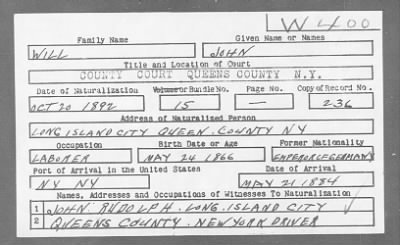 W400
Family Name Given Name or Names
WILL JOHN
Title and Location of Court
COUNTY COURT QUEENS COUNTY N.Y.
Date of Naturalization Volume or Bundle No. Page No. Copy of Record No.
OCT 20 1892 15 — 236
Address of Naturalized Person
LONG ISLAND CITY QUEEN. COUNTY NY
Occupation Birth Date or Age Former Nationality
LABORER MAY 24 1866 EMPEROR OF GERMANY
Port of Arrival in the United States Date of Arrival
NY NY MAY 21 1884
Names, Addresses and Occupations of Witnesses To Naturalization
1 JOHN RUDOLPH. LONG ISLAND CITY
2 QUEENS COUNTY. NEW YORK DRIVER